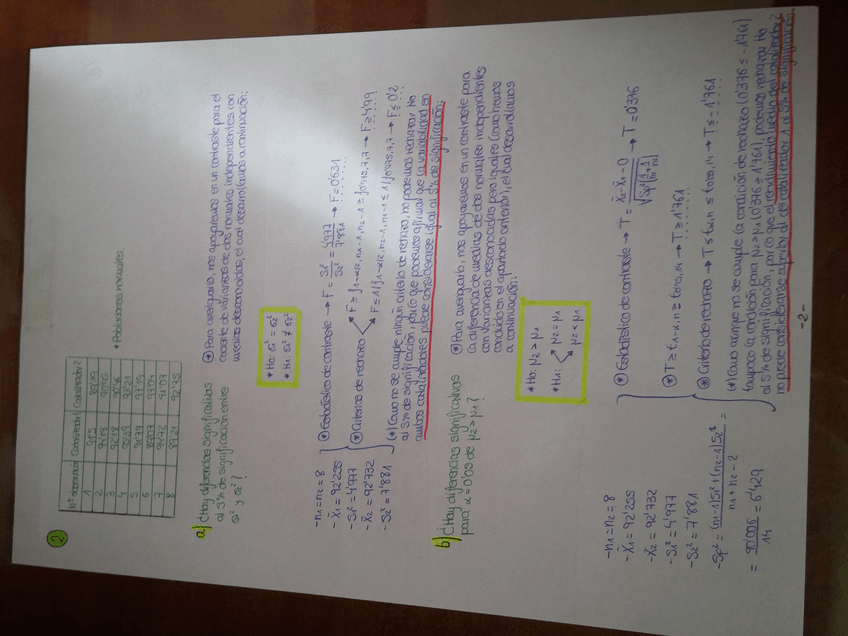 2
Nº observación Catalizador 1 Catalizador 2
1 91'5 89'19
2 94'18 90'95
3 92'18 90'46
4 95'39 93'21
5 91'79 97'19
6 89'07 97'04
7 94'72 91'07
8 89'21 92'75
* Poblaciones normales.
a) ¿Hay diferencias significativas
al 5% de significación entre
σ₁² y σ₂²?
* Para averiguarlo, nos apoyaremos en un contraste para el
cociente de varianzas de dos normales independientes con
medias desconocidas, el cual desarrollamos a continuación:
* H₀: σ₁² = σ₂²
* H₁: σ₁² ≠ σ₂²
- n₁ = n₂ = 8
- x̄₁ = 92'255
- S₁² = 4'977
- x̄₂ = 92'732
- S₂² = 7'881
* Estadístico de contraste → F = S₁²/S₂² = 4'977/7'881 → F = 0'631
* Criterios de rechazo
F ≥ f1-α/2, n₁-1, n₂-1 ≥ f0'975,7,7 → F ≥ 4'99
F ≤ 1/f1-α/2, n₂-1, n₁-1 ≤ 1/f0'975,7,7 → F ≤ 0'2
(*) Como no se cumple ningún criterio de rechazo, no podemos rechazar H₀
al 5% de significación, por lo que podemos afirmar que la variabilidad en
ambos catalizadores puede considerarse igual al 5% de significación.
b) ¿Hay diferencias significativas
para α = 0'05 de μ₂ > μ₁?
* Para averiguarlo, nos apoyaremos en un contraste para
la diferencia de medias de dos normales independientes
con varianzas desconocidas pero iguales (como hemos
concluido en el apartado anterior), el cual desarrollamos
a continuación:
* H₀: μ₂ > μ₁
* H₁: μ₂ = μ₁
μ₂ < μ₁
- n₁ = n₂ = 8
- x̄₁ = 92'255
- x̄₂ = 92'732
- S₁² = 4'977
- S₂² = 7'881
- Sp² = (n₁-1)S₁² + (n₂-1)S₂² / n₁ + n₂ - 2 =
= 90'006/14 = 6'429
* Estadístico de contraste → T = x̄₂ - x̄₁ - 0 / √Sp²(1/n₁ + 1/n₂) → T = 0'376
* T ≥ t1-α, n ≥ t0'95,14 → T ≥ 1'761
* Criterio de rechazo → T ≤ tα,n ≤ t0'05,14 → T ≤ -1'761
(*) Como aunque no se cumple la condición de rechazo (0'376 ≤ -1'761)
tampoco la condición para μ₂ > μ₁ (0'376 ≥ 1'761), podemos rechazar H₀
al 5% de significación, por lo que el rendimiento medio del catalizador 2
no puede considerarse superior al del catalizador 1 al 5% de significación.
-2-